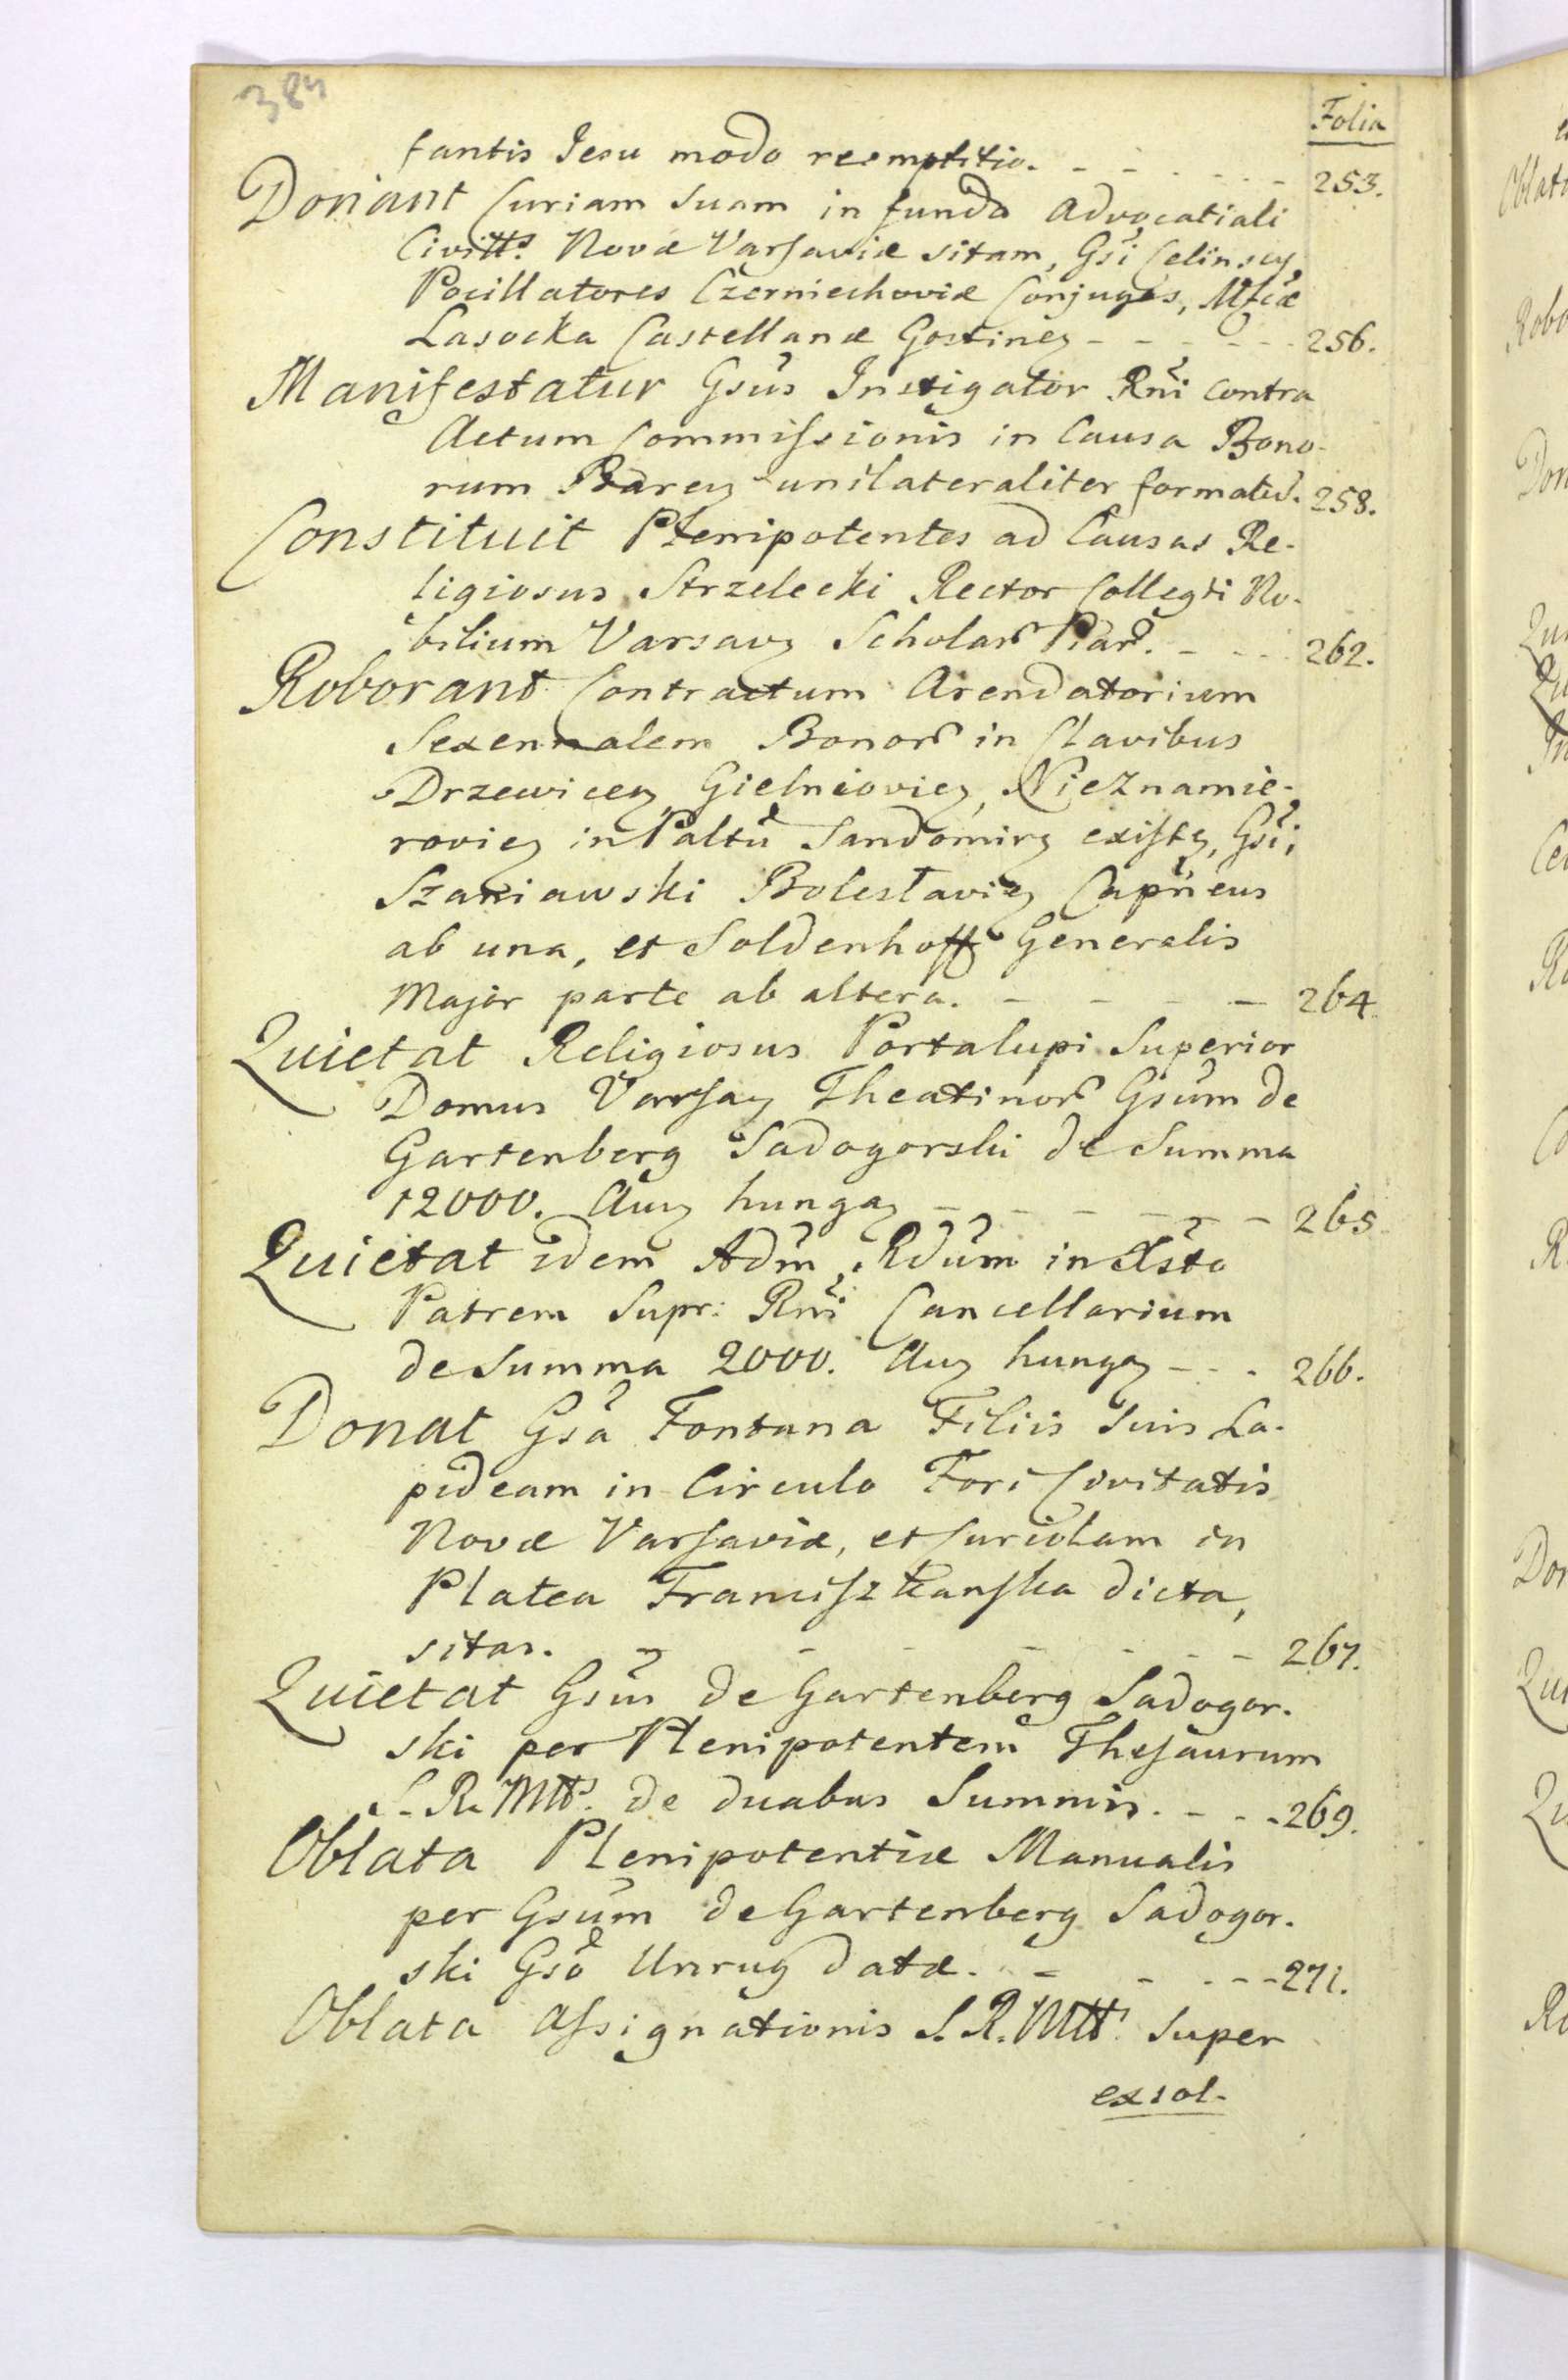 384
Folia
fantis Jesu modo reemptitio. - - - - - - 253.
Donant Curiam Suam in fundo Advocatiali
Civitts. Novæ Varsaviæ sitam, Gsi Celinscy,
Pocillatores Czerniechoviæ Conjuges, Mfcæ
Lasocka Castellanæ Gostineɳ - - - - - 256.
Manifestatur Gsus Instigator Rni contra
Actum Commissionis in Causa Bono-
rum Bareɳ unilateraliter formatū. 258.
Constituit Plenipotentes ad Causas Re-
ligiosus Strzelecki Rector Collegii No-
bilium Varsavɳ Scholar Piar. - - - 262.
Roborant Contractum Arendatorium
Sexennalem Bonor in Clavibus
Drzewiceɳ Gielnievieɳ, Nieznamie-
rovieɳ in Paltu Sandomirɳ existɳ, Gsi,
Szaniawski Boleslavieɳ Capneus
ab una, et Soldenhoff Generalis
Major parte ab altera. - - - - 264.
Quietat Religiosus Portalupi Superior
Domus Varsaɳ Theatinor Gsum de
Gartenberg Sadogorski de Summa
12000. Auɳ hungaɳ - - - - - - 265.
Quietat idem Adm Rdum in Xsto
Patrem Supr: Rni Cancellarium
de Summa 2000. Auɳ hungaɳ - - - 266.
Donat Gsa Fontana Filiis Suis La-
pideam in Circulo Fori Civitatis
Novæ Varsaviæ, et Curiolam in
Platea Franciszkanska dicta,
sitas. - - - - - - - 267.
Quietat Gsus de Gartenberg Sadogor-
ski per Plenipotentem Thesaurum
S. R. Mtts. de duabus Summis. - - - 269.
Oblata Plenipotentiæ Manualis
per Gsum de Gartenberg Sadogor-
ski Gso Unrug datæ. - - - - - 271.
Oblata Assignationis S. R. Mtts. Super
exsol-